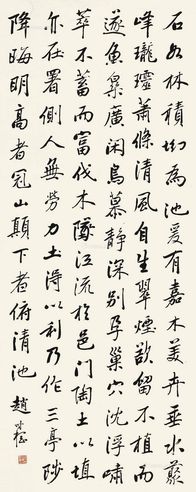 石如林積坳為池爰有嘉木美卉垂水藂
峰瓏蕭條清風自生翠煙欲留不植而
遂魚樂廣閑鳥慕靜深別孕巢穴沈浮嘯
萃不蓄而富伐木隊江流於邑門陶土以埴
亦在署側人無勞力土得以利乃作三亭陟
降晦明高者冠山顛下者俯清池 趙